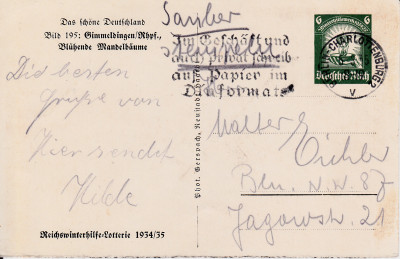 Das schöne Deutschland
Bild 195: Gimmeldingen/Rhpf.,
Blühende Mandelbäume
Die besten
Grüße von
Hier sendet
Hilde
Reichswinterhilfe-Lotterie 1934/35
Phot. Gerspach, Neustadt/Haardt
Sauber
stempeln
Im Geschäft und
auch privat schreib
auf Papier im
Dinformat
6 6
Deutsches Reich
CHARLOTTENBURG 2
v
Walter
Eichler
Bln. N.W. 87
Jagowstr. 21